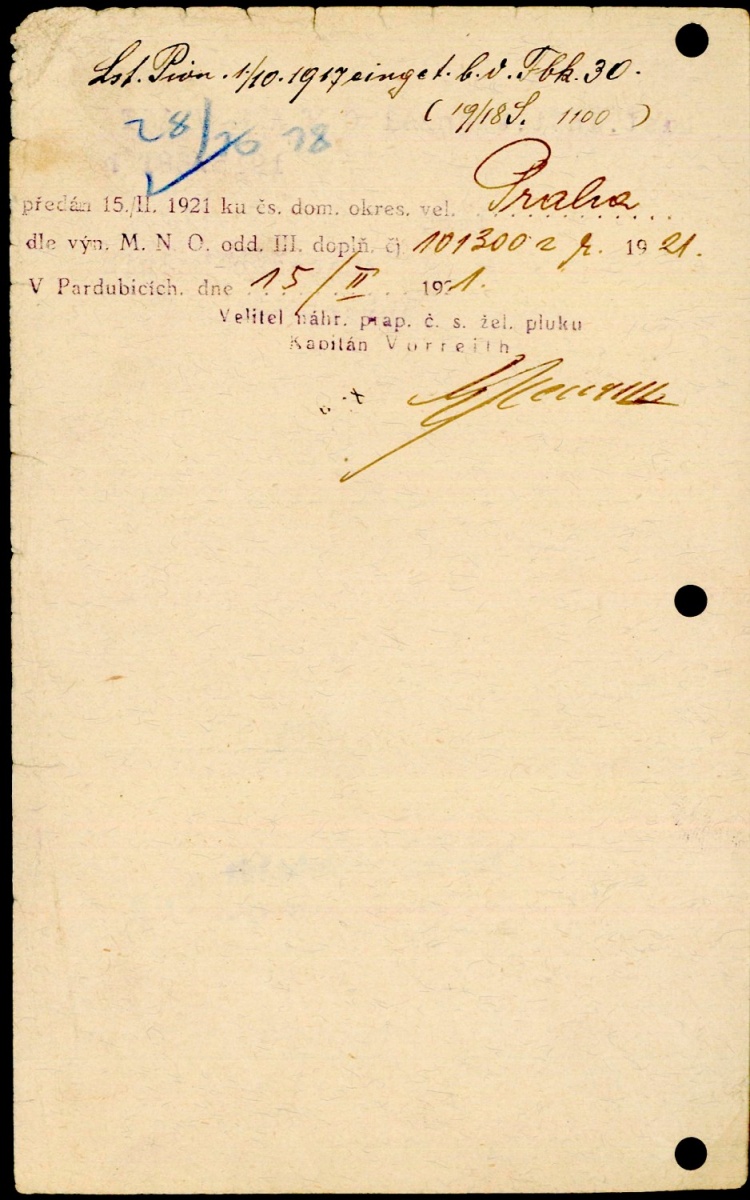 Lst. Pion. 1/10. 1917 einget. b. d. Fbk. 30.
(19/18 S. 1100)
28/
předán 15./II. 1921 ku čs. dom. okres. vel. Praha
dle výn. M. N O. odd. III. doplň. čj 101300 z r. 1921.
V Pardubicích. dne 15/II 1921.
Velitel náhr. prap. č. s. žel. pluku
Kapitán Vorreith